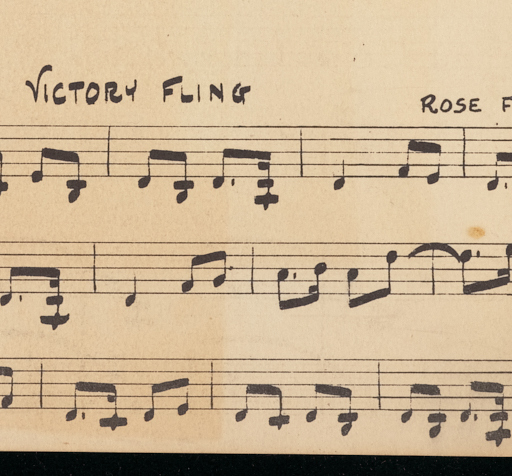 VICTORY FLING
ROSE F